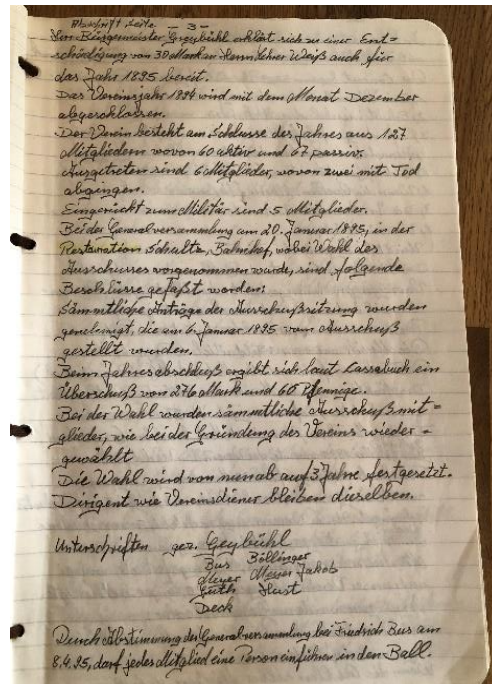 Abschrift Seite - 3 -
Herr Bürgermeister Geybühl erklärt sich zu einer Ent=
schädigung von 30 Mark an Herrn Lehrer Weiß auch für
das Jahr 1895 bereit.
Das Vereinsjahr 1894 wird mit dem Monat Dezember
abgeschlossen.
Der Verein besteht am Schlusse des Jahres aus 127
Mitgliedern wovon 60 aktiv und 67 passiv.
Ausgetreten sind 6 Mitglieder, wovon zwei mit Tod
abgingen.
Eingerückt zum Militär sind 5 Mitglieder.
Bei der Generalversammlung am 20. Januar 1895, in der
Restauration Schultz, Bahnhof, wobei Wahl des
Ausschusses vorgenommen wurde, sind folgende
Beschlüsse gefaßt worden:
Sämmtliche Anträge der Ausschußsitzung wurden
genehmigt, die am 6. Januar 1895 vom Ausschuß
gestellt wurden.
Beim Jahresabschluß ergibt sich laut Cassabuch ein
Überschuß von 276 Mark und 60 Pfennige.
Bei der Wahl wurden sämmtliche Ausschußmit=
glieder, wie bei der Gründung des Vereins wieder=
gewählt
Die Wahl wird von nun ab auf 3 Jahre festgesetzt.
Dirigent wie Vereinsdiener bleiben dieselben.
Unterschriften gez. Geybühl
Bus Böllinger
Meyer Messer Jakob
Guth Hust
Deck
Durch Abstimmung der Generalversammlung bei Friedrich Bus am
8.4.95, darf jedes Mitglied eine Person einführen in den Ball.